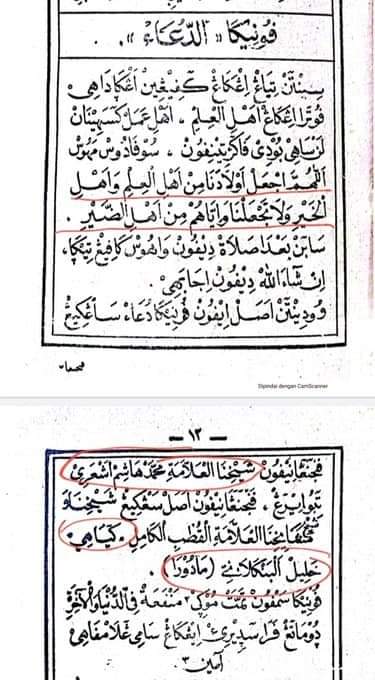 فونيكا «الدّعاء».
سينتن تياڠ اڠكاڠ كفيڠين اڠكاداهي
فوترا اڠكاڠ اهل العلم، اهل عمل كسهينان
لن باهي بودي فاكرتنيفون، سوفادوس مهوس
اللهمّ اجعل اولادنا من اهل العلم واهل
الخير ولا تجعلنا واياهم من اهل الضّير.
سابن بعدا صلاة ديفون واهوس
ان شاء الله ديفون اجابهي.
ودينتن اصل ايفون فونيكا دعاء ساڠكيڠ
Dipindai dengan CamScanner
— ١٢ —
فنجنڠانيفون شيخنا العلّامة محمد هاشم اشعري
تبوايرڠ، فنجنڠانيفون اصل سڠكيڠ شيخنا و
شيخ مشايخنا العلّامة القطب الكامل، كياهي
خليل البنكلاني (مادورا).
فونيكا سمفون تمت موڮي٢ منفعة في الدّنيا والآخرة
دوماتڠ فرا سديريك ايڠكاڠ سامي غلامفاهي
آمين ٣